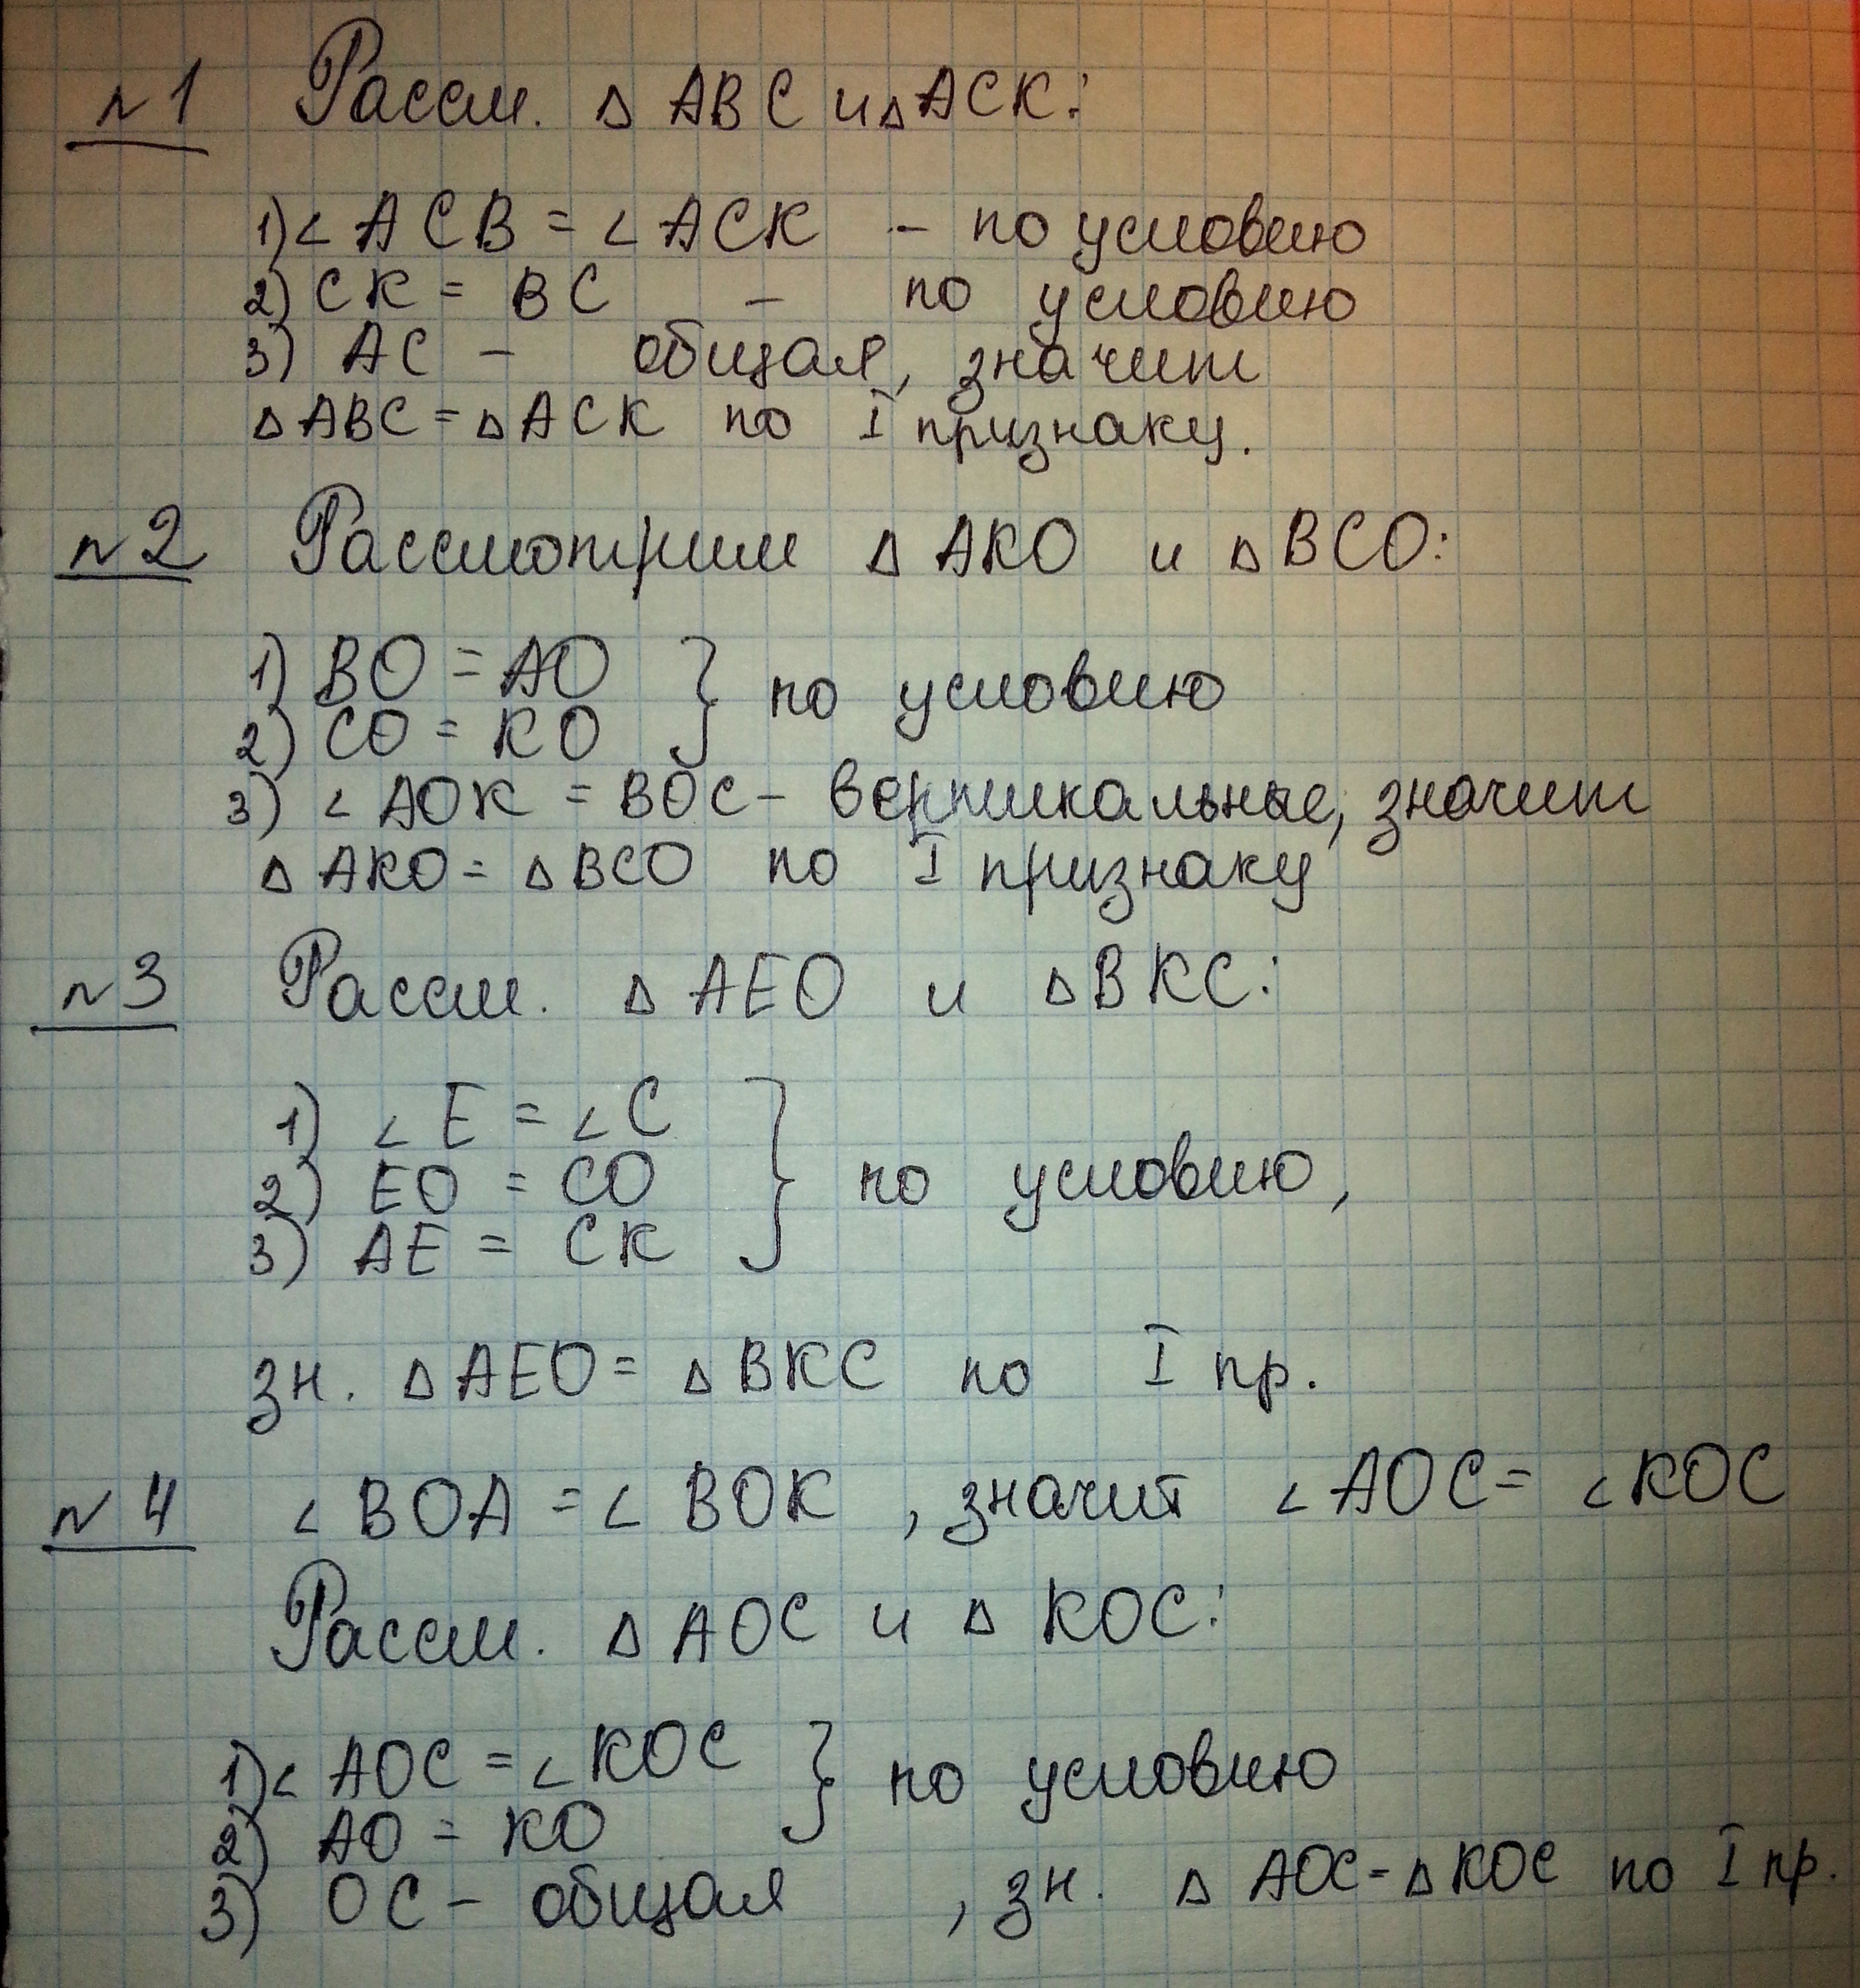 №1 Рассм. △ ABC и △ ACK:
1) ∠ ACB = ∠ ACK – по условию
2) CK = BC – по условию
3) AC – общая, значит
△ ABC = △ ACK по I признаку.
№2 Рассмотрим △ AKO и △ BCO:
1) BO = AO } по условию
2) CO = KO
3) ∠ AOK = BOC – вертикальные, значит
△ AKO = △ BCO по I признаку
№3 Рассм. △ AEO и △ BKC:
1) ∠ E = ∠ C
2) EO = CO } по условию,
3) AE = CK
зн. △ AEO = △ BKC по I пр.
№4 ∠ BOA = ∠ BOK, значит ∠ AOC = ∠ KOC
Рассм. △ AOC и △ KOC:
1) ∠ AOC = ∠ KOC } по условию
2) AO = KO
3) OC – общая, зн. △ AOC = △ KOC по I пр.